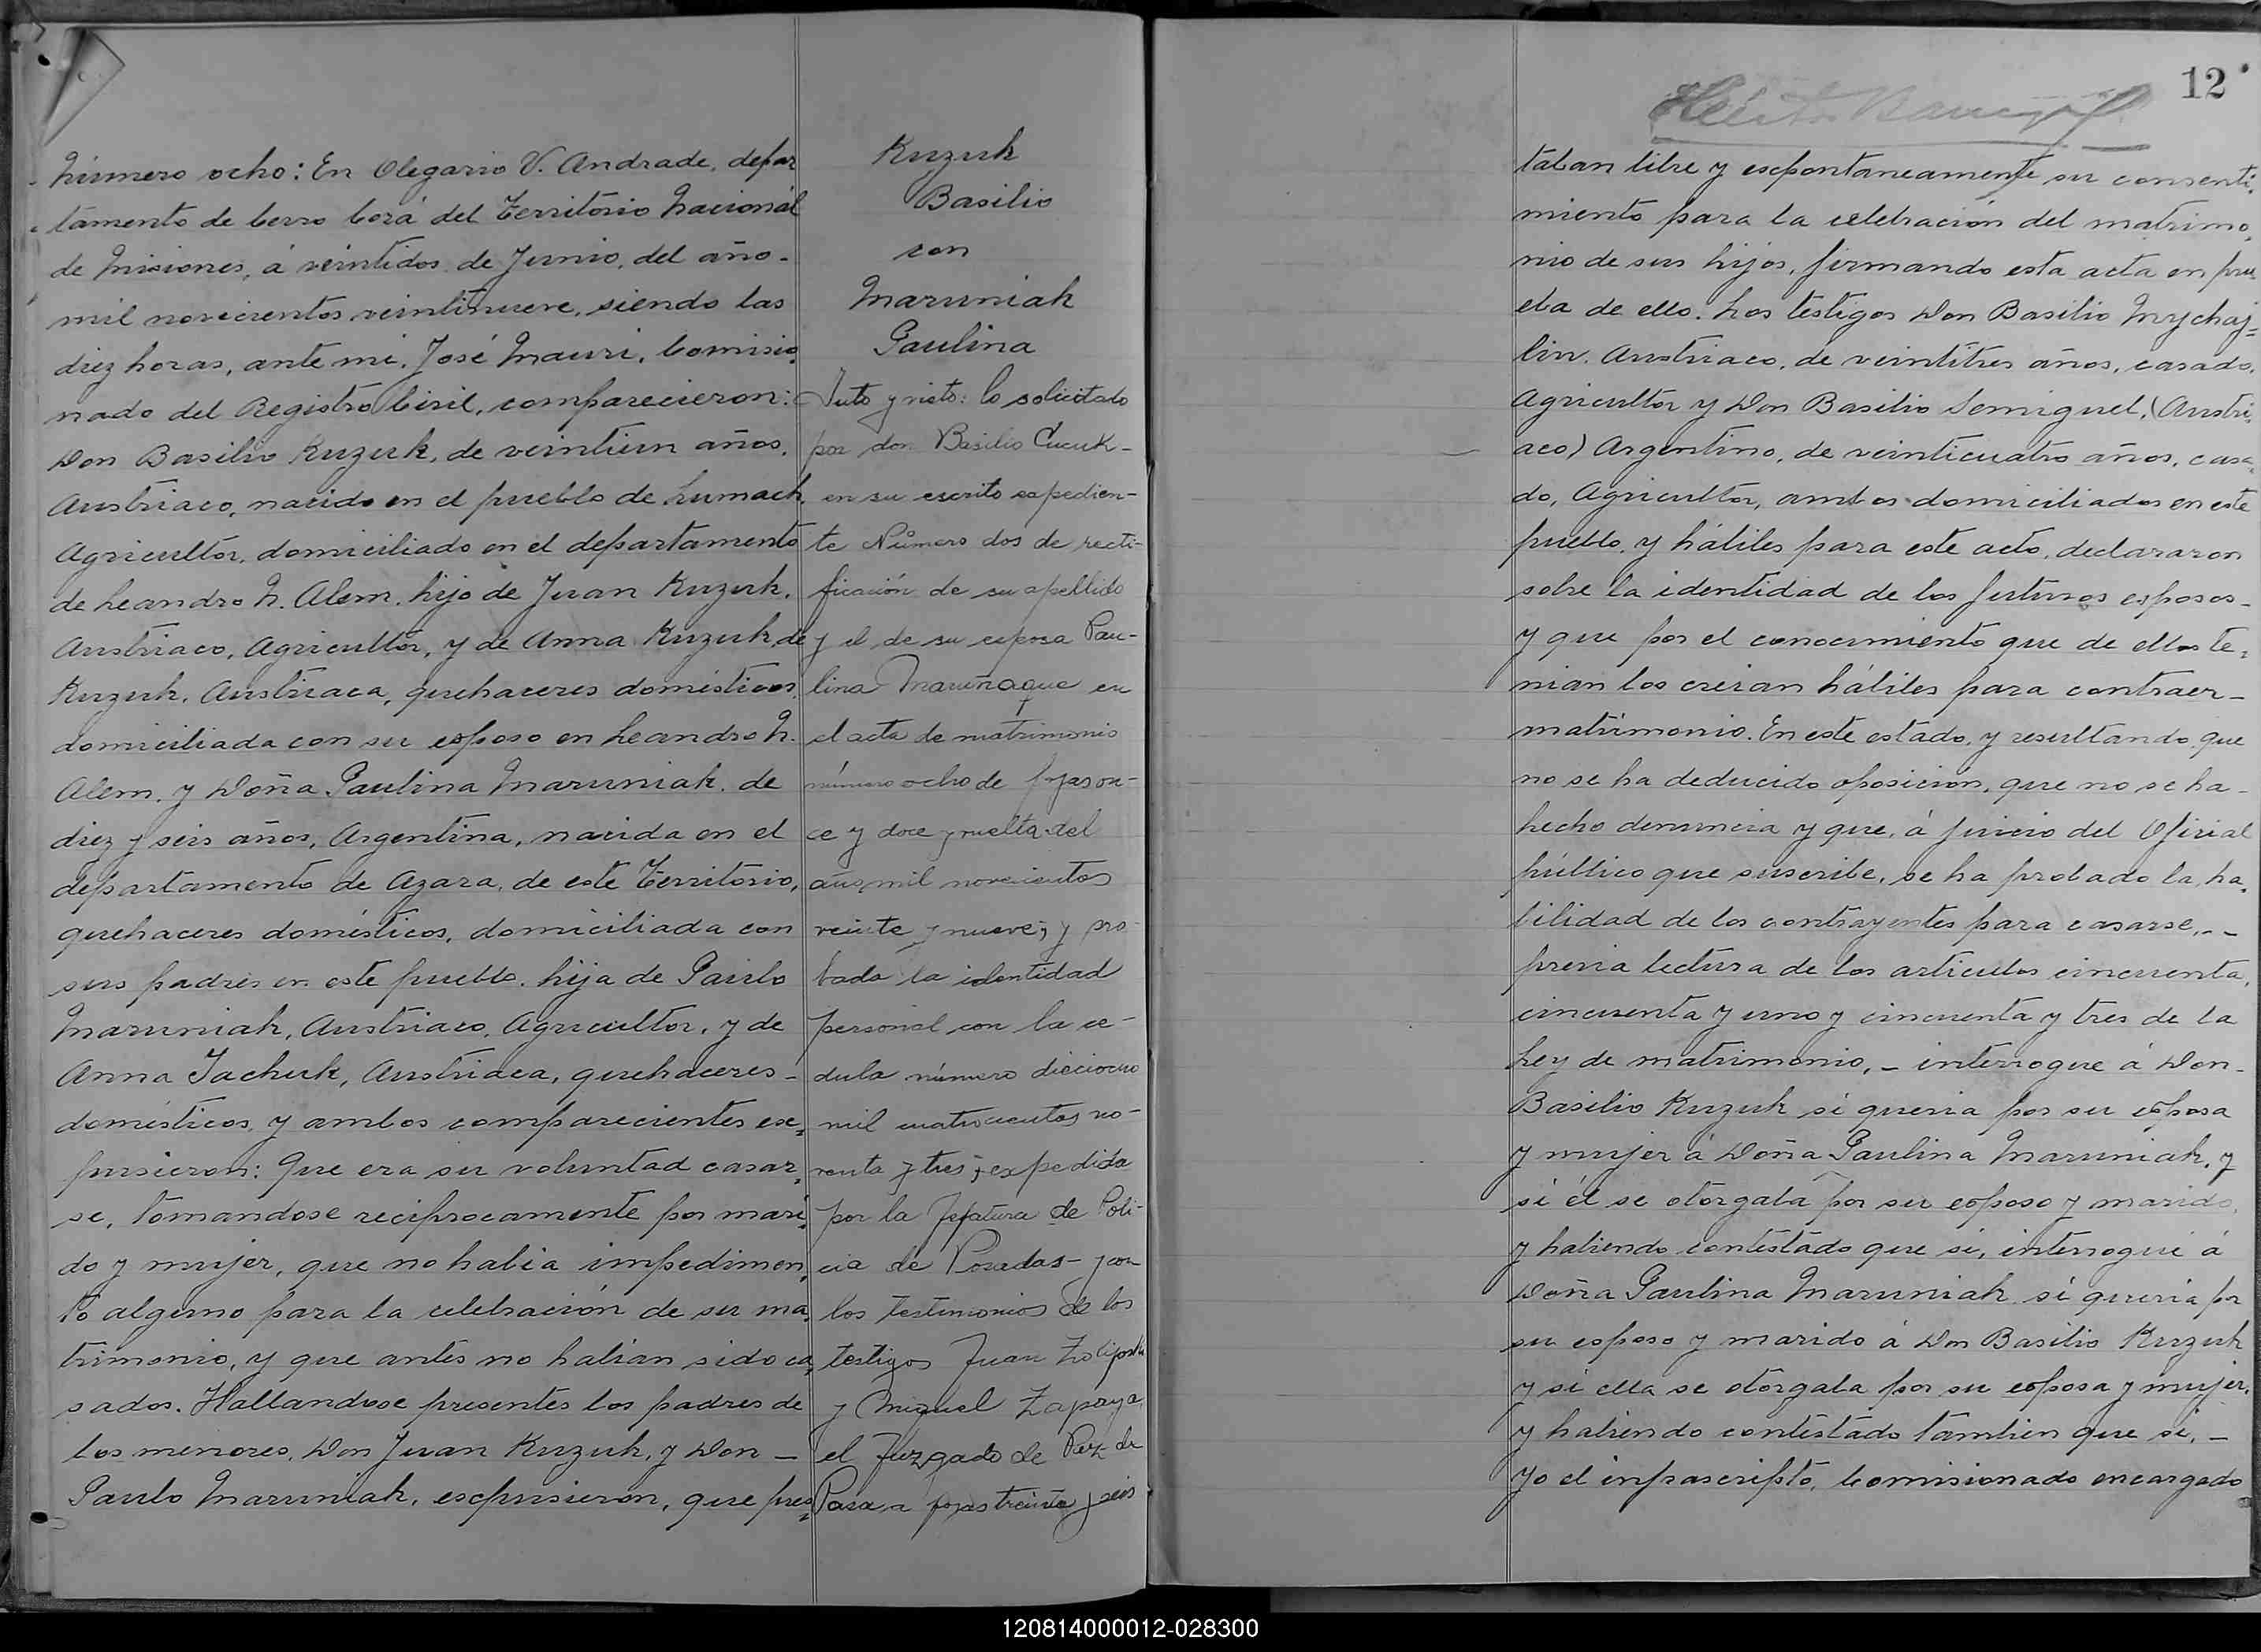 Número ocho: En Olegario V. Andrade, depar
tamento de Cerro Corá del Territorio Nacional
de Misiones, á veintidos de Junio, del año-
mil novecientos veintinueve, siendo las
diez horas, ante mi, José Mauri, Comisio,
nado del Registro Civil, comparecieron:
Don Basilio Kuzuk, de veintiun años,
Austriaco, nacido en el pueblo de Lumach,
Agricultor, domiciliado en el departamento
de Leandro N. Alem, hijo de Juan Kuzuk,
Austriaco, Agricultor, y de Anna Kuzuk, de
Kuzuk, Austriaca, quehaceres domésticos,
domiciliada con su esposo en Leandro N.
Alem, y Doña Paulina Maruniak, de
diez y seis años, Argentina, nacida en el
departamento de Azara, de este Territorio,
quehaceres domésticos, domiciliada con
sus padres en este pueblo, hija de Paulo
Maruniak, Austriaco, Agricultor, y de
Anna Jachuk, Austriaca, quehaceres-
domésticos, y ambos comparecientes ex,
pusieron: Que era su voluntad casar,
se, tomandose reciprocamente por mari,
do y mujer, que no habia impedimen,
to alguno para la celebración de su ma,
trimonio, y que antes no habian sido ca,
sados. Hallandose presentes los padres de
los menores, Don Juan Kuzuk, y Don -
Paulo Maruniak, expusieron, que pres,
Kuzuk
Basilio
con
Maruniak
Paulina
Auto y visto: lo solicitado
por don Basilio Cucuk-
en su escrito expedien-
te Número dos de recti-
ficación de su apellido
y el de su esposa Pau-
lina Maruñaque en
el acta de matrimonio
número ocho de fojas on-
ce y doce y vuelta del
año mil novecientos
veinte y nueve; y pro-
bada la identidad
personal con la ce-
dula número dieciocho
mil cuatrocientos no-
venta y tres; expedida
por la Jefatura de Poli-
cia de Posadas - y con
los testimonios de los
testigos Juan
y Miguel Zaparya
el Juzgado de Paz de
a fojas treinta y seis
12
taban libre y espontaneamente su consenti,
miento para la celebración del matrimo,
nio de sus hijos, firmando esta acta en pru
eba de ello. Los testigos Don Basilio Mychaj-
lin, Austriaco, de veintitres años, casado,
Agricultor y Don Basilio Semiguel, (Austri,
aco) Argentino, de veinticuatro años, casa,
do, Agricultor, ambos domiciliados en este
pueblo, y hábiles para este acto, declararon
sobre la identidad de los futuros esposos-
y que por el conocimiento que de ellos te,
nian los creian hábiles para contraer-
matrimonio. En este estado, y resultando que
no se ha deducido oposición, que no se ha-
hecho denuncia y que, á juicio del Oficial
público que suscribe, se ha probado la ha,
bilidad de los contrayentes para casarse,--
previa lectura de los articulos cincuenta,
cincuenta y uno y cincuenta y tres de la
Ley de matrimonio,- interrogue á Don-
Basilio Kuzuk si queria por su esposa
y mujer á Doña Paulina Maruniak, y
si él se otorgaba por su esposo y marido,
y habiendo contestado que si, interrogué á
Doña Paulina Maruniak si queria por
su esposo y marido á Don Basilio Kuzuk
y si ella se otorgaba por su esposa y mujer,
y habiendo contestado tambien que si,-
Yo el infrascripto, Comisionado encargado
120814000012-028300